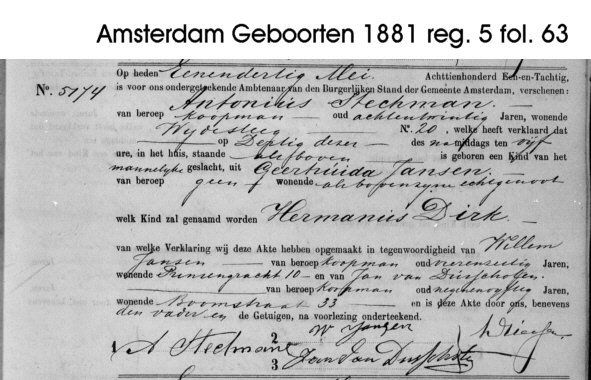 Amsterdam Geboorten 1881 reg. 5 fol. 63
Op heden Eenendertig Mei. Achttienhonderd Een-en-Tachtig,
No. 5174 is voor ons ondergeteekende Ambtenaar van den Burgerlijken Stand der Gemeente Amsterdam, verschenen:
Antonius Stechman.
van beroep koopman oud achtentwintig Jaren, wonende
Wydesteeg No. 20, welke heeft verklaard dat
op Dertig dezer des namiddags ten vijf
ure, in het huis, staande alsboven is geboren een Kind van het
mannelijke geslacht, uit Geerhuida Jansen
van beroep geen wonende alsboven zijne echtgenoot
welk Kind zal genaamd worden Hermanus Dirk.
van welke Verklaring wij deze Akte hebben opgemaakt in tegenwoordigheid van Willem
Jansen van beroep koopman oud Jaren,
wonende Prinsengracht 10 en van Jan van
van beroep koopman oud Jaren,
wonende Boomstraat 33 en is deze Akte door ons, benevens
den vader en de Getuigen, na voorlezing onderteekend.
W Jansen
1 A Stechman 2
3 Jan van